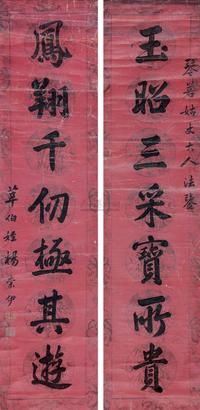 琴菩姑丈大人法鑒
玉昭三采寶所貴
鳳翔千仞極其遊
莘伯姪楊崇伊